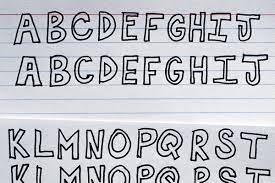 ABCDEFGHIJ
ABCDEFGHIJ
KLMNOPQRST
KLMNOPQRST